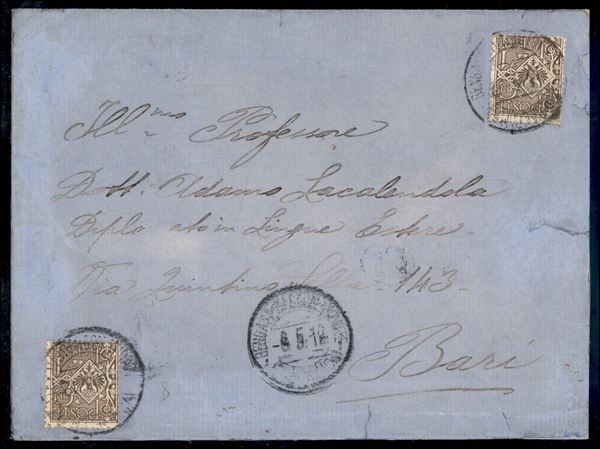 Ill.mo Professore
Dott. Adamo Lacalendola
Diplomato in Lingue Estere
Via Quintino Sella 143
Bari
-8.5.12